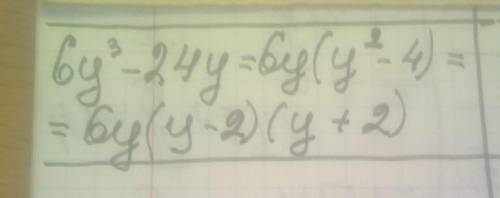 6y³-24y=6y(y²-4)=
=6y(y-2)(y+2)